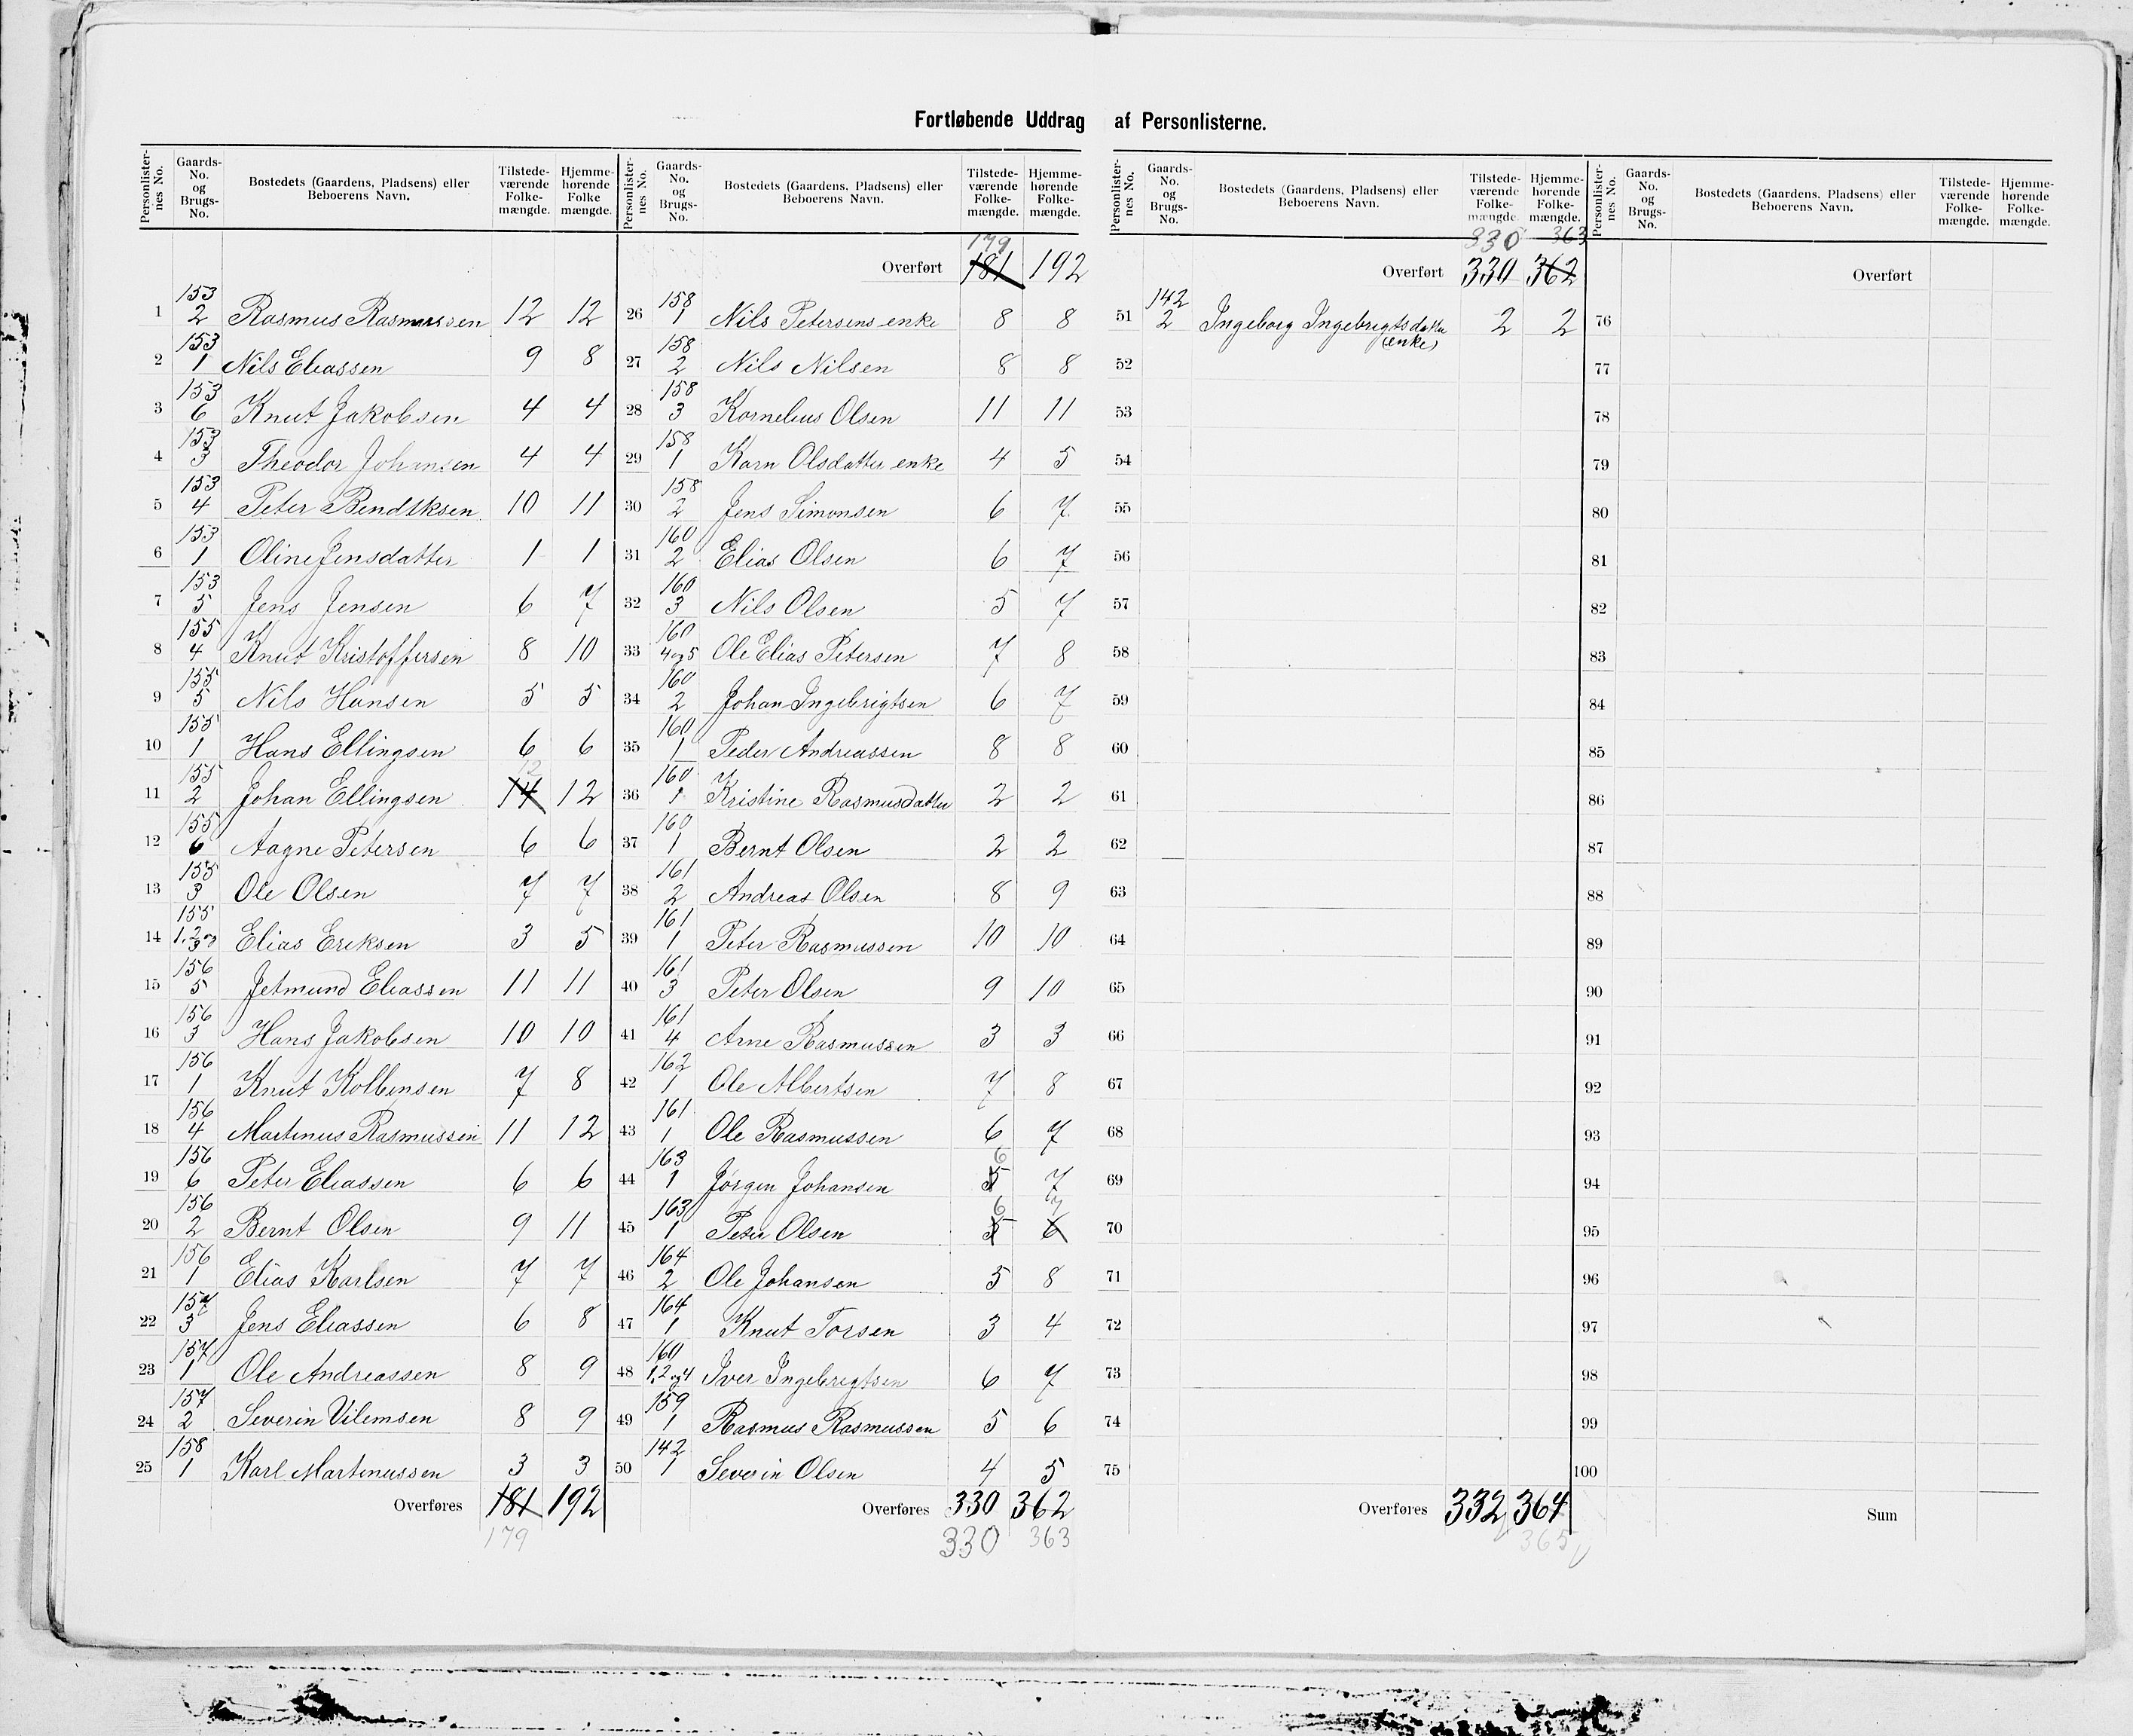 Fortløbende Uddrag af Personlisterne.
Personlister-nes No. | Gaards-No. og Brugs-No. | Bostedets (Gaardens, Pladsens) eller Beboerens Navn. | Tilstede-værende Folke-mængde. | Hjemme-hørende Folke mængde.
1 | 153 2 | Rasmus Rasmussen | 12 | 12
2 | 153 1 | Nils Eliassen | 9 | 8
3 | 153 6 | Knut Jakobsen | 4 | 4
4 | 153 3 | Theodor Johansen | 4 | 4
5 | 153 4 | Peter Bendiksen | 10 | 11
6 | 153 1 | Oline Jensdatter | 1 | 1
7 | 153 5 | Jens Jensen | 6 | 7
8 | 155 4 | Knut Kristoffersen | 8 | 10
9 | 155 5 | Nils Hansen | 5 | 5
10 | 155 1 | Hans Ellingsen | 6 | 6
11 | 155 2 | Johan Ellingsen | 14 12 | 12
12 | 155 6 | Aagne Petersen | 6 | 6
13 | 155 3 | Ole Olsen | 7 | 7
14 | 155 1, 2 og 3 | Elias Eriksen | 3 | 5
15 | 156 5 | Jetmund Eliassen | 11 | 11
16 | 156 3 | Hans Jakobsen | 10 | 10
17 | 156 1 | Knut Kolbensen | 7 | 8
18 | 156 4 | Martinus Rasmussen | 11 | 12
19 | 156 6 | Peter Eliassen | 6 | 6
20 | 156 2 | Bernt Olsen | 9 | 11
21 | 156 1 | Elias Karlsen | 7 | 7
22 | 157 3 | Jens Eliassen | 6 | 8
23 | 157 1 | Ole Andreassen | 8 | 9
24 | 157 2 | Severin Vilemsen | 8 | 9
25 | 158 1 | Karl Martinussen | 3 | 3
Overføres | 181 | 192
179
Personlister-nes No. | Gaards-No. og Brugs-No. | Bostedets (Gaardens, Pladsens) eller Beboerens Navn. | Tilstede-værende Folke-mængde. | Hjemme-hørende Folke-mængde.
179
Overført | 181 | 192
26 | 158 1 | Nils Petersens enke | 8 | 8
27 | 158 2 | Nils Nilsen | 8 | 8
28 | 158 3 | Kornelius Olsen | 11 | 11
29 | 158 1 | Karn Olsdatter enke | 4 | 5
30 | 158 2 | Jens Simonsen | 6 | 7
31 | 160 2 | Elias Olsen | 6 | 7
32 | 160 3 | Nils Olsen | 5 | 7
33 | 160 4 og 5 | Ole Elias Petersen | 7 | 8
34 | 160 2 | Johan Ingebrigtsen | 6 | 7
35 | 160 1 | Peder Andreassen | 8 | 8
36 | 160 1 | Kristine Rasmusdatter | 2 | 2
37 | 160 1 | Bernt Olsen | 2 | 2
38 | 161 2 | Andreas Olsen | 8 | 9
39 | 161 1 | Peter Rasmussen | 10 | 10
40 | 161 3 | Peter Olsen | 9 | 10
41 | 161 4 | Arne Rasmussen | 3 | 3
42 | 162 1 | Ole Albertsen | 7 | 8
43 | 161 1 | Ole Rasmussen | 6 | 7
44 | 163 1 | Jørgen Johansen | 5 6 | 7
45 | 163 1 | Peter Olsen | 5 6 | 6 7
46 | 164 2 | Ole Johansen | 5 | 8
47 | 164 1 | Knut Torsen | 3 | 4
48 | 160 1, 2 og 4 | Iver Ingebrigtsen | 6 | 7
49 | 159 1 | Rasmus Rasmussen | 5 | 6
50 | 142 1 | Severin Olsen | 4 | 5
Overføres | 330 | 362
330 | 363
Personlister-nes No. | Gaards-No. og Brugs-No. | Bostedets (Gaardens, Pladsens) eller Beboerens Navn. | Tilstede-værende Folke-mængde. | Hjemme-hørende Folke-mængde.
330 | 363
Overført | 330 | 362
51 | 142 2 | Ingeborg Ingebrigtsdatter (enke) | 2 | 2
52
53
54
55
56
57
58
59
60
61
62
63
64
65
66
67
68
69
70
71
72
73
74
75
Overføres | 332 | 364
365
Personlister-nes No. | Gaards-No. og Brugs-No. | Bostedets (Gaardens, Pladsens) eller Beboerens Navn. | Tilstede-værende Folke-mængde. | Hjemme-hørende Folke-mængde.
Overført
76
77
78
79
80
81
82
83
84
85
86
87
88
89
90
91
92
93
94
95
96
97
98
99
100
Sum